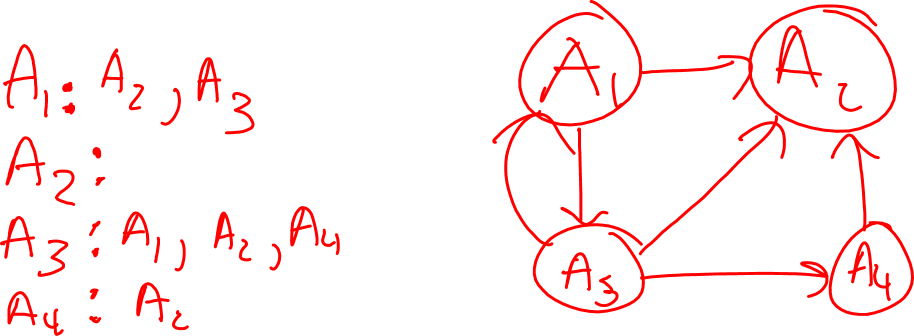 A1: A2, A3
A2:
A3: A1, A2, A4
A4: A2
A1
A2
A3
A4